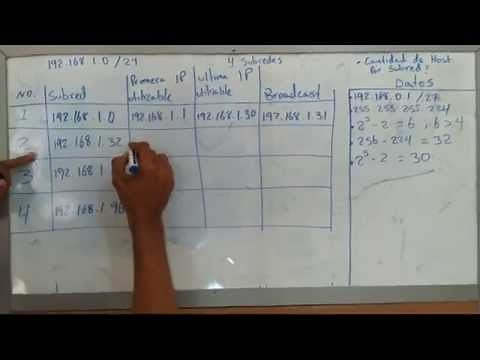 192.168.1.0 /24
4 Subredes
• Cantidad de Host
Por Subred?
NO.
Subred
Primera IP
utilizable
Ultima IP
utilizable
Broadcast
1
192.168.1.0
192.168.1.1
192.168.1.30
192.168.1.31
2
192.168.1.32
3
192.168.1.
4
192.168.1.96
Datos
• 192.168.0.1 /27
• 255.255.255.224
• 2³-2=6, 6>4
• 256-224=32
• 2⁵-2=30